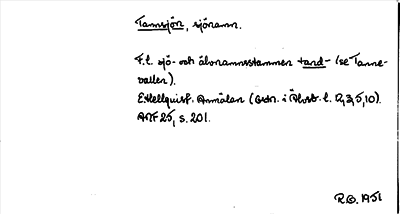 Tannsjön, sjönamn.
F.l. sjö- och älvnamnsstammen tand- (se Tanne-
vallen).
E. Hellquist. Anmälan (Ortn. i Älvsb. l. 12, 3, 5, 10).
ANF 25, s. 201.
R.O. 1951